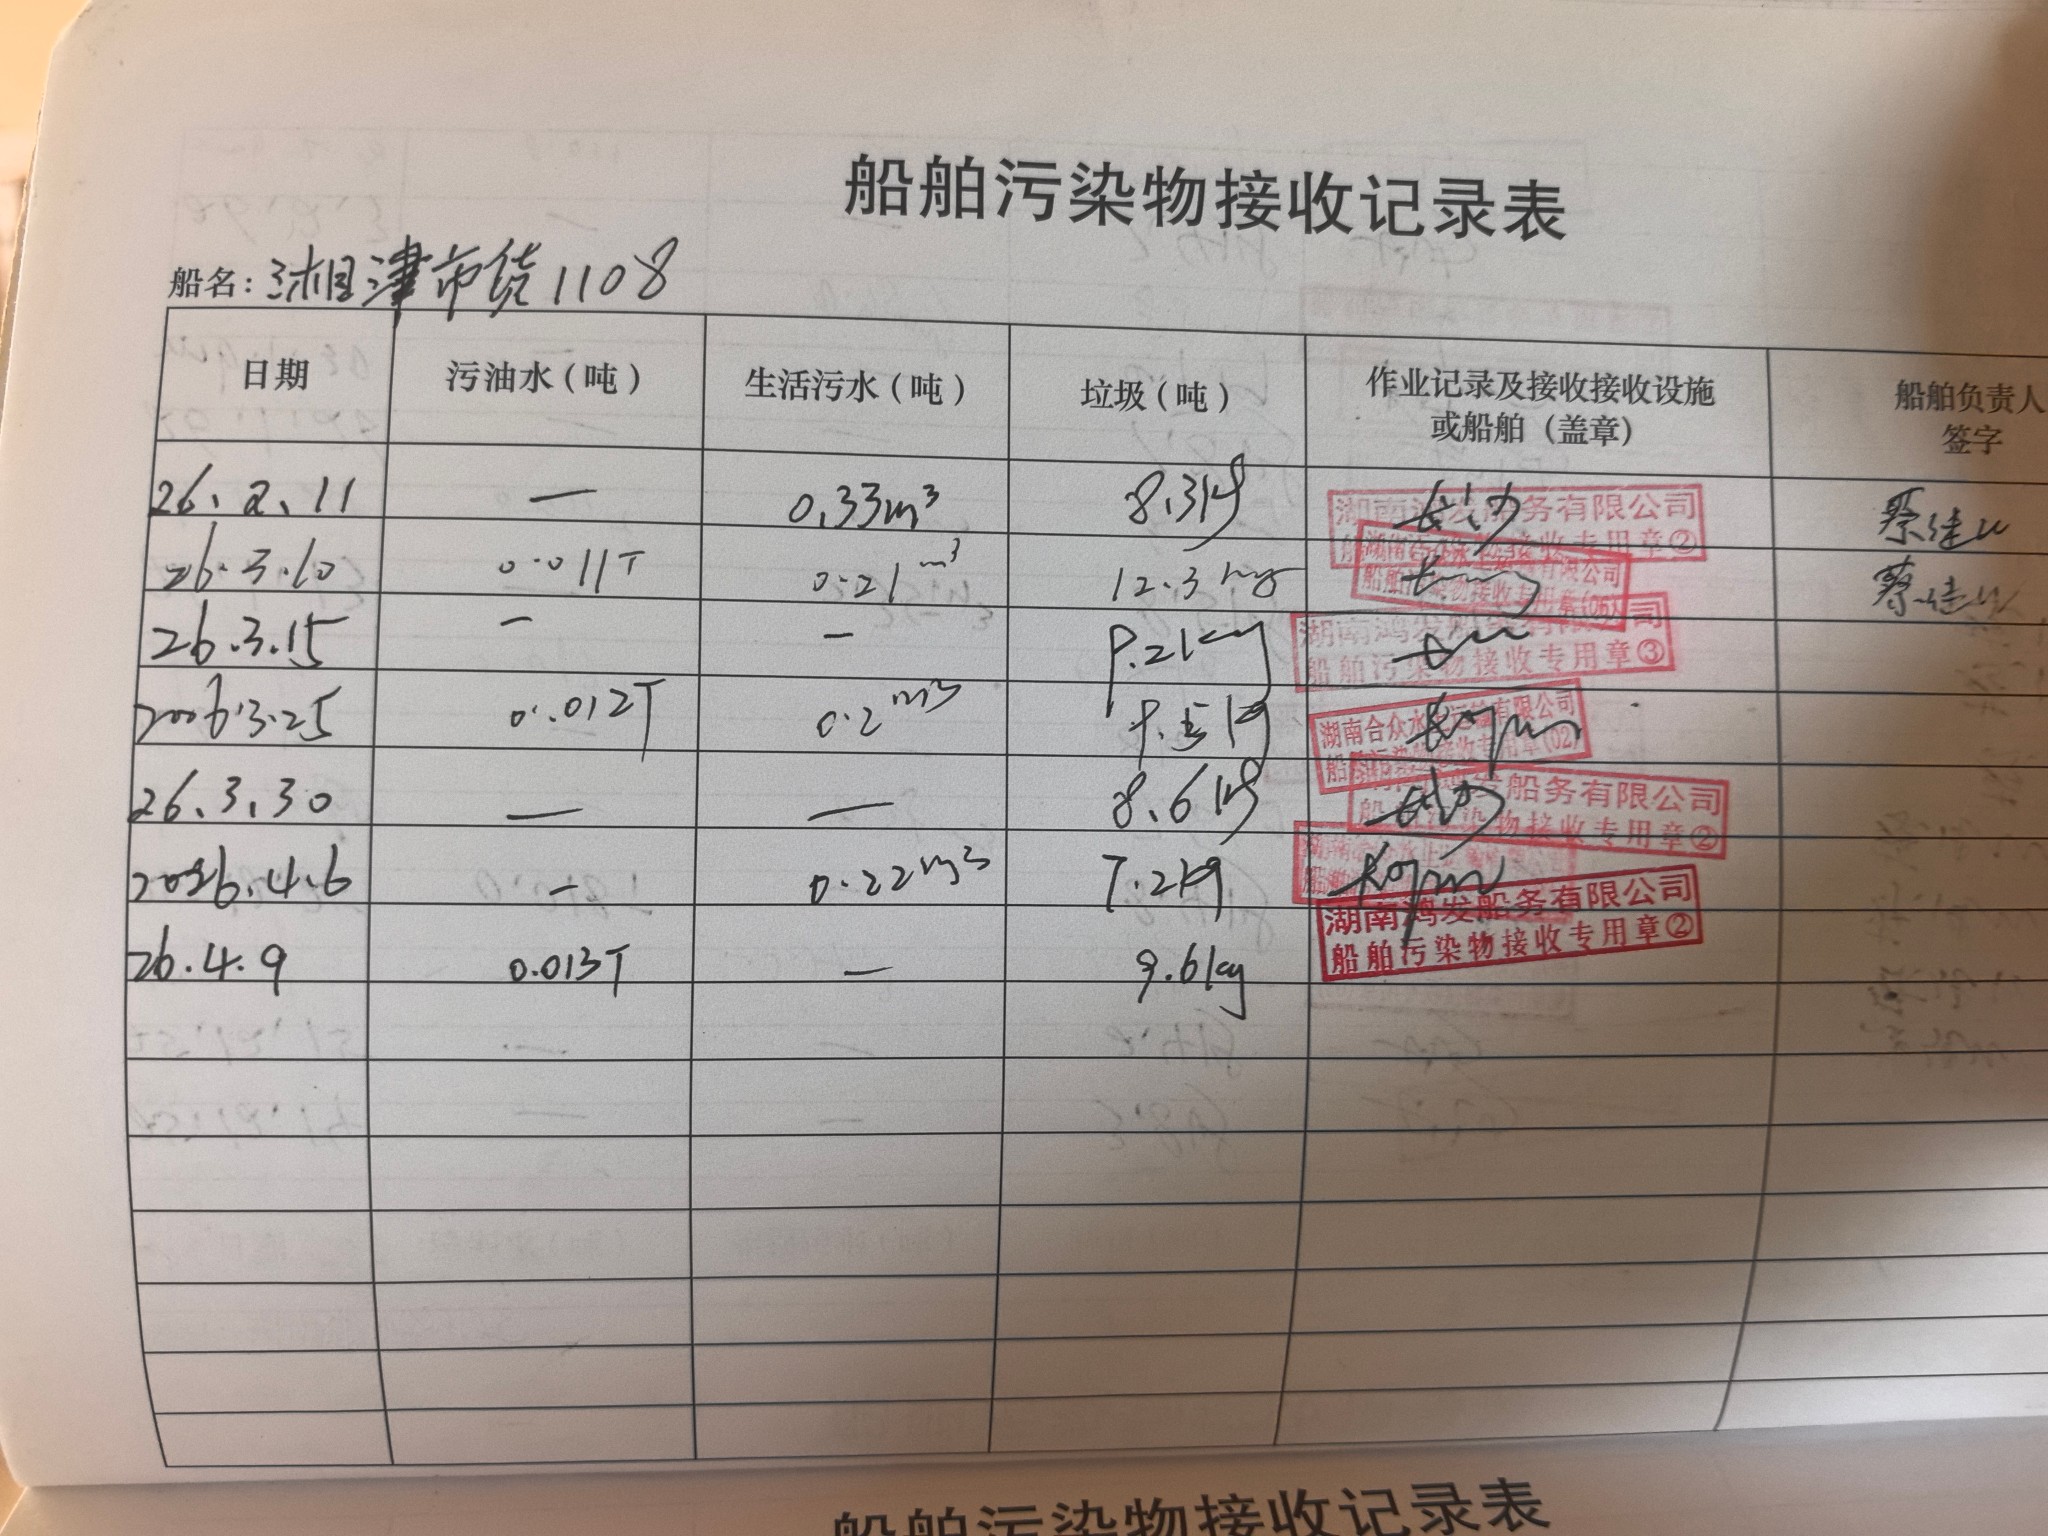 船舶污染物接收记录表
船名: 湘津市货1108
日期 污油水(吨) 生活污水(吨) 垃圾(吨) 作业记录及接收接收设施或船舶(盖章) 船舶负责人签字
26.2.11 — 0.33m³ 8.3kg 长沙
湖南鸿发船务有限公司
船舶污染物接收专用章②
26.3.10 0.011T 0.21m³ 12.3kg
有限公司
船舶污染物接收专用章(06)
26.3.15 — — 9.2kg
湖南鸿发船务有限公司
船舶污染物接收专用章③
2026.3.25 0.012T 0.2m³ 9.5kg
湖南合众水上运输有限公司
船舶污染物接收专用章(02)
26.3.30 — — 8.6kg 长沙
发船务有限公司
船舶污染物接收专用章②
2026.4.6 — 0.22m³ 7.2kg
湖南鸿发船务有限公司
船舶污染物接收专用章②
26.4.9 0.013T — 9.6kg
船舶污染物接收记录表